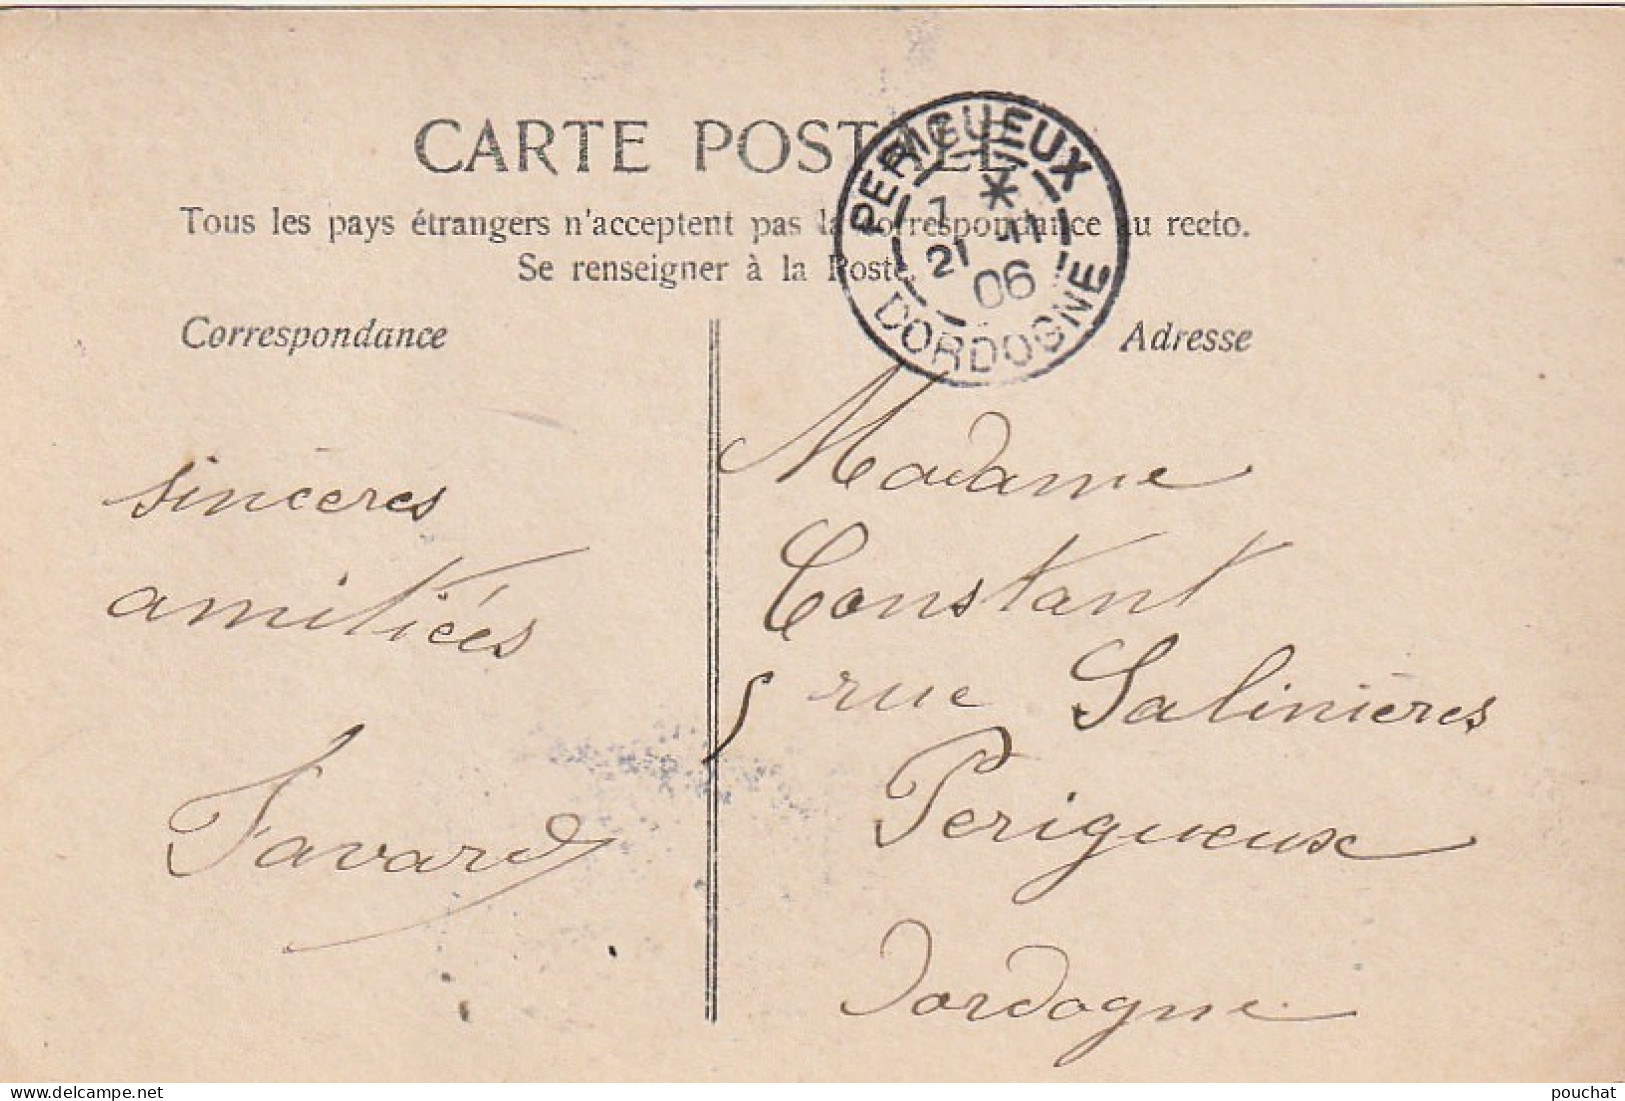 CARTE POSTALE
Tous les pays étrangers n'acceptent pas la correspondance au recto.
Se renseigner à la Poste.
PERIGUEUX
7 *
21 -11
06
DORDOGNE
Correspondance
Adresse
sincères
amitiées
Favard
Madame
Constant
5 rue Salinières
Perigueux
Dordogne
delcampe.net
pouchat